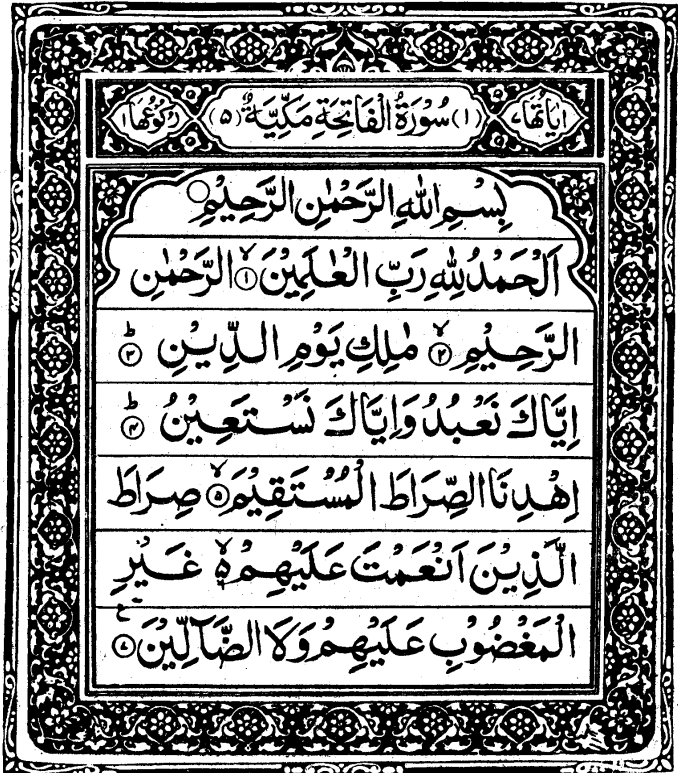 اٰيَاتُهَا ٧ (١) سُوْرَةُ الْفَاتِحَةِ مَكِّيَّةٌ (٥) رُكُوْعُهَا ١
بِسْمِ اللهِ الرَّحْمٰنِ الرَّحِيْمِ ○
اَلْحَمْدُ لِلّٰهِ رَبِّ الْعٰلَمِيْنَ ۙ﴿١﴾ الرَّحْمٰنِ
الرَّحِيْمِ ۙ﴿٢﴾ مٰلِكِ يَوْمِ الدِّيْنِ ؕ﴿٣﴾
اِيَّاكَ نَعْبُدُ وَاِيَّاكَ نَسْتَعِيْنُ ؕ﴿۴﴾
اِهْدِنَا الصِّرَاطَ الْمُسْتَقِيْمَ ۙ﴿۵﴾ صِرَاطَ
الَّذِيْنَ اَنْعَمْتَ عَلَيْهِمْ ۙ۬ۦ غَيْرِ
الْمَغْضُوْبِ عَلَيْهِمْ وَلَا الضَّآلِّيْنَ ﴿٧﴾ ع